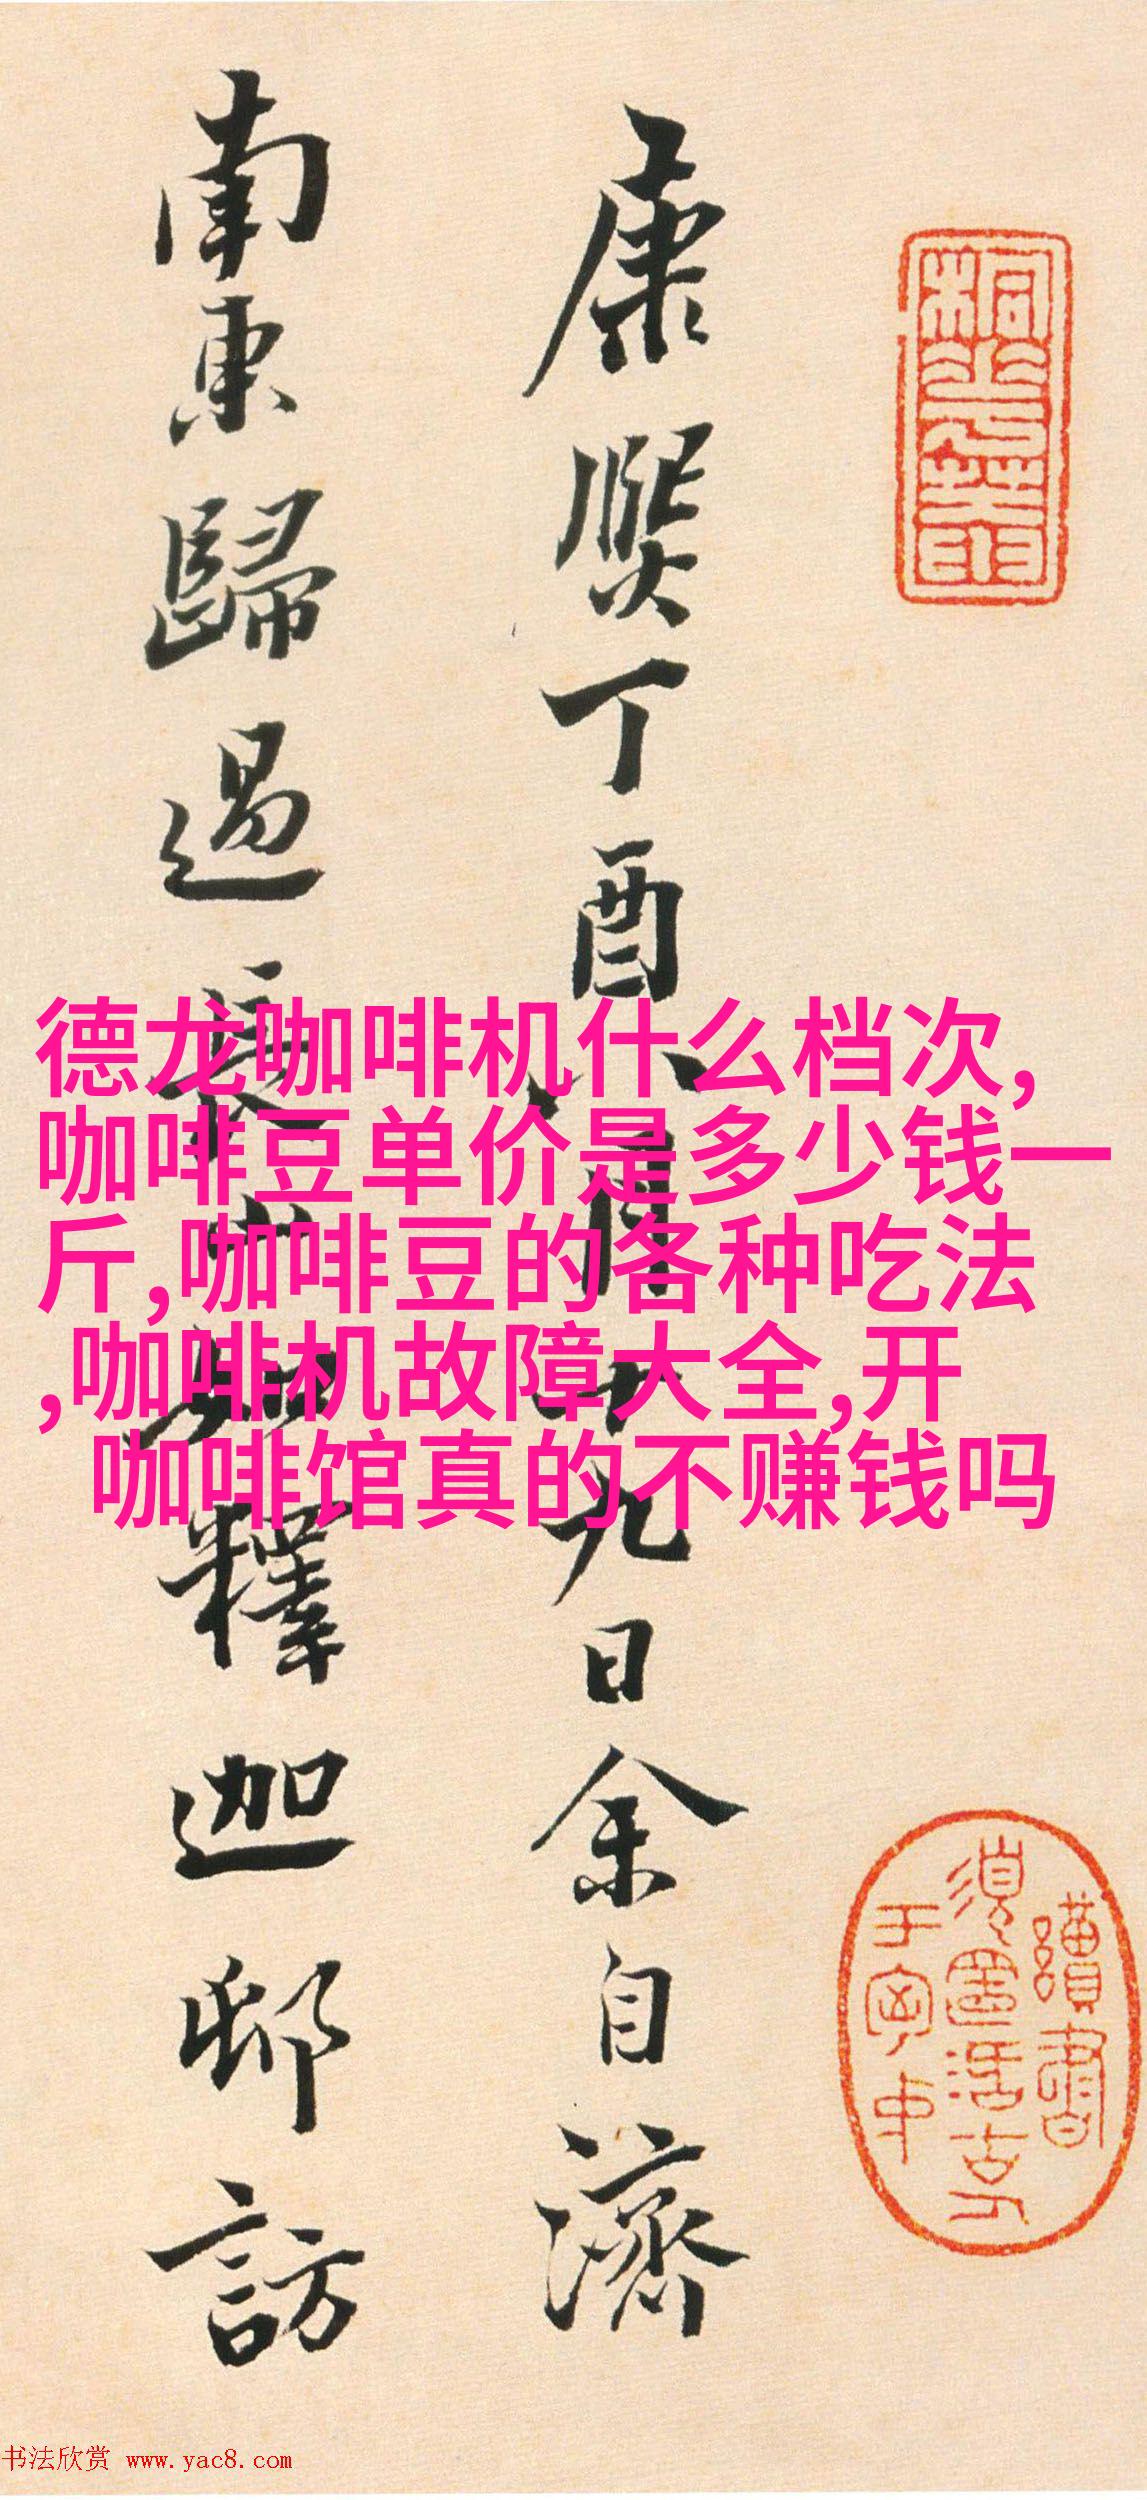 康熙丁酉八月十九日余自濟
南東歸過長山釋迦邨訪
德龙咖啡机什么档次,
咖啡豆单价是多少钱一
斤,咖啡豆的各种吃法
,咖啡机故障大全,开
咖啡馆真的不赚钱吗
书法欣赏 www.yac8.com